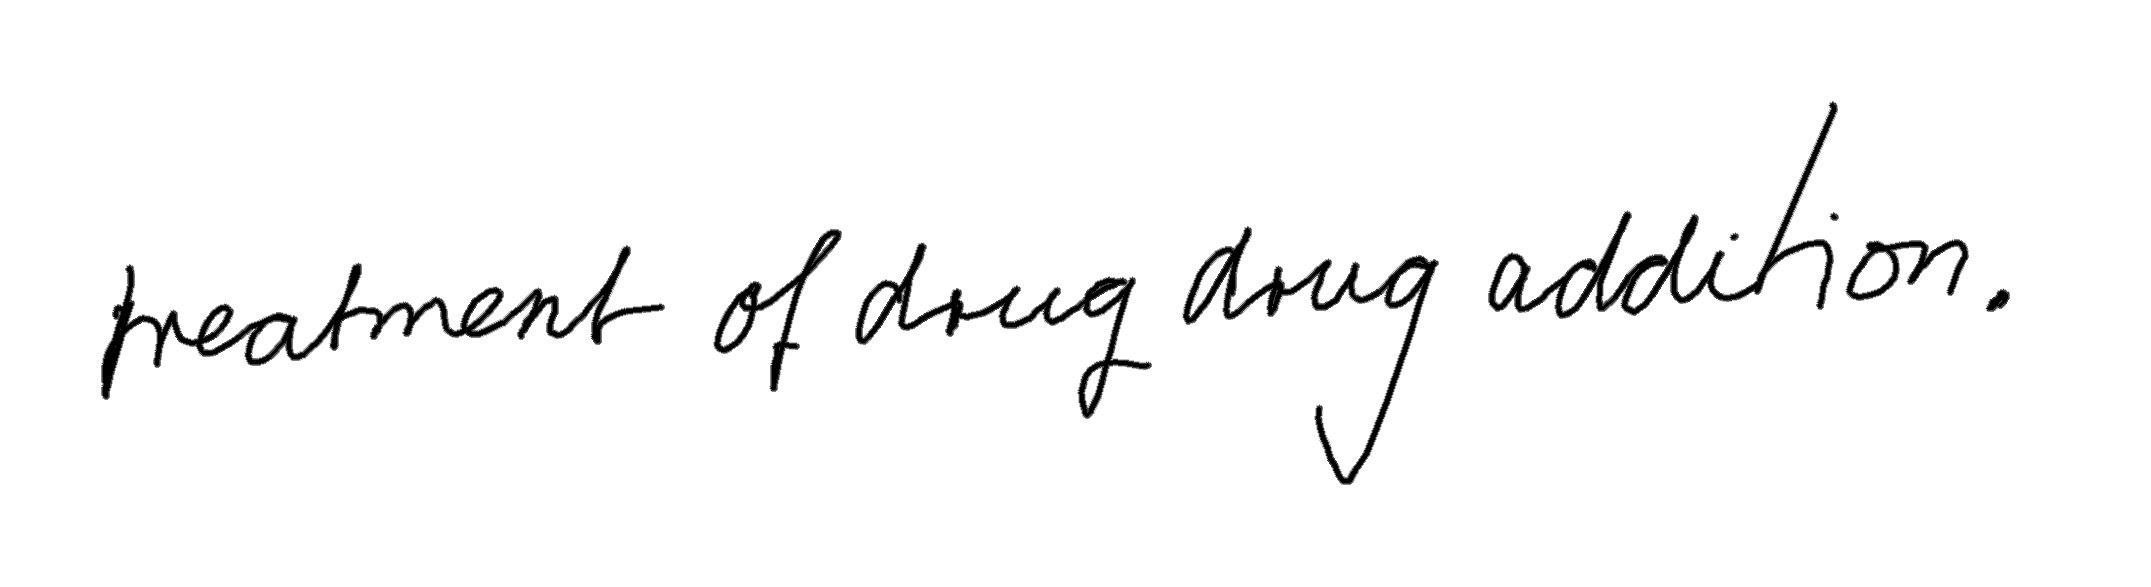 treatment of drug drug addition.